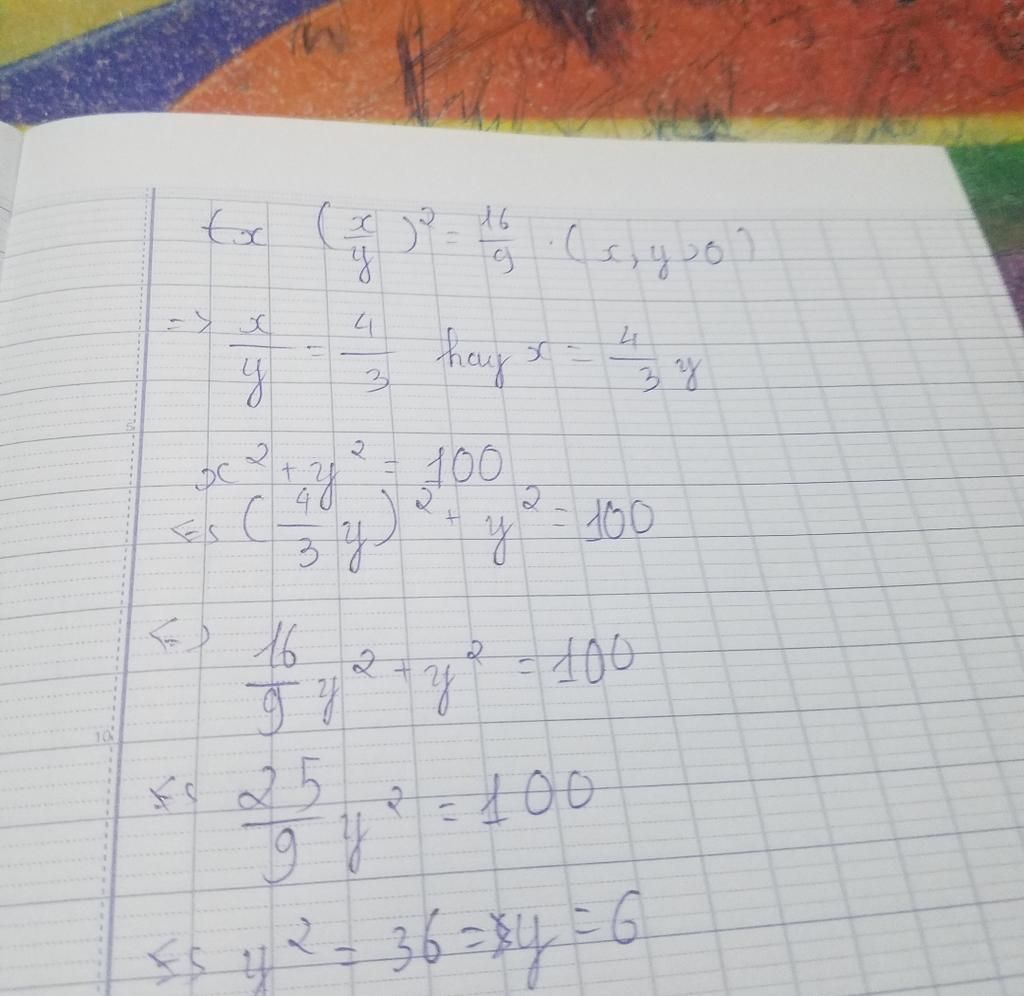 tx (x/y)² = 16/9 . (x, y > 0)
=> x/y = 4/3 hay x = 4/3 y
5
x² + y² = 100
<=> (4/3 y)² + y² = 100
<=> 16/9 y² + y² = 100
10
<=> 25/9 y² = 100
<=> y² = 36 => y = 6